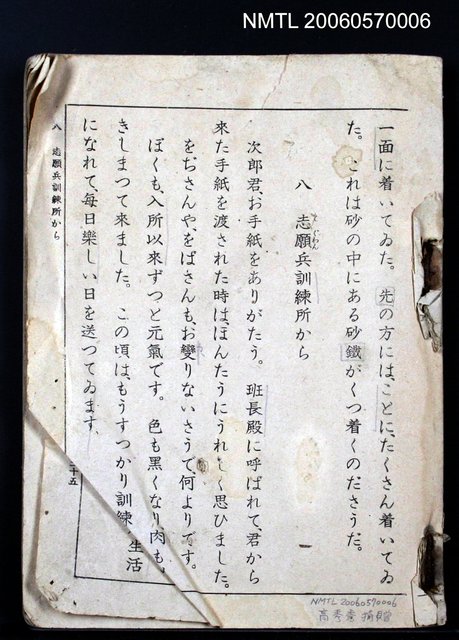 NMTL 20060570006
一面に着いてゐた。先の方には、ことに、たくさん着いてゐ
た。これは砂の中にある砂鐵がくつ着くのださうだ。
八 志願兵訓練所から 一
次郎君、お手紙をありがたう。班長殿に呼ばれて、君から
來た手紙を渡された時は、ほんたうにうれしく思ひました。
をぢさんやをばさんも、お變りないさうで、何よりです。
ぼくも、入所以來ずつと元氣です。色も黒くなり、肉も、
きしまつて來ました。この頃は、もうすつかり訓練 生活
になれて、毎日樂しい日を送つてゐます。
八 志願兵訓練所から
十五
NMTL 20060570006
高秀 捐贈